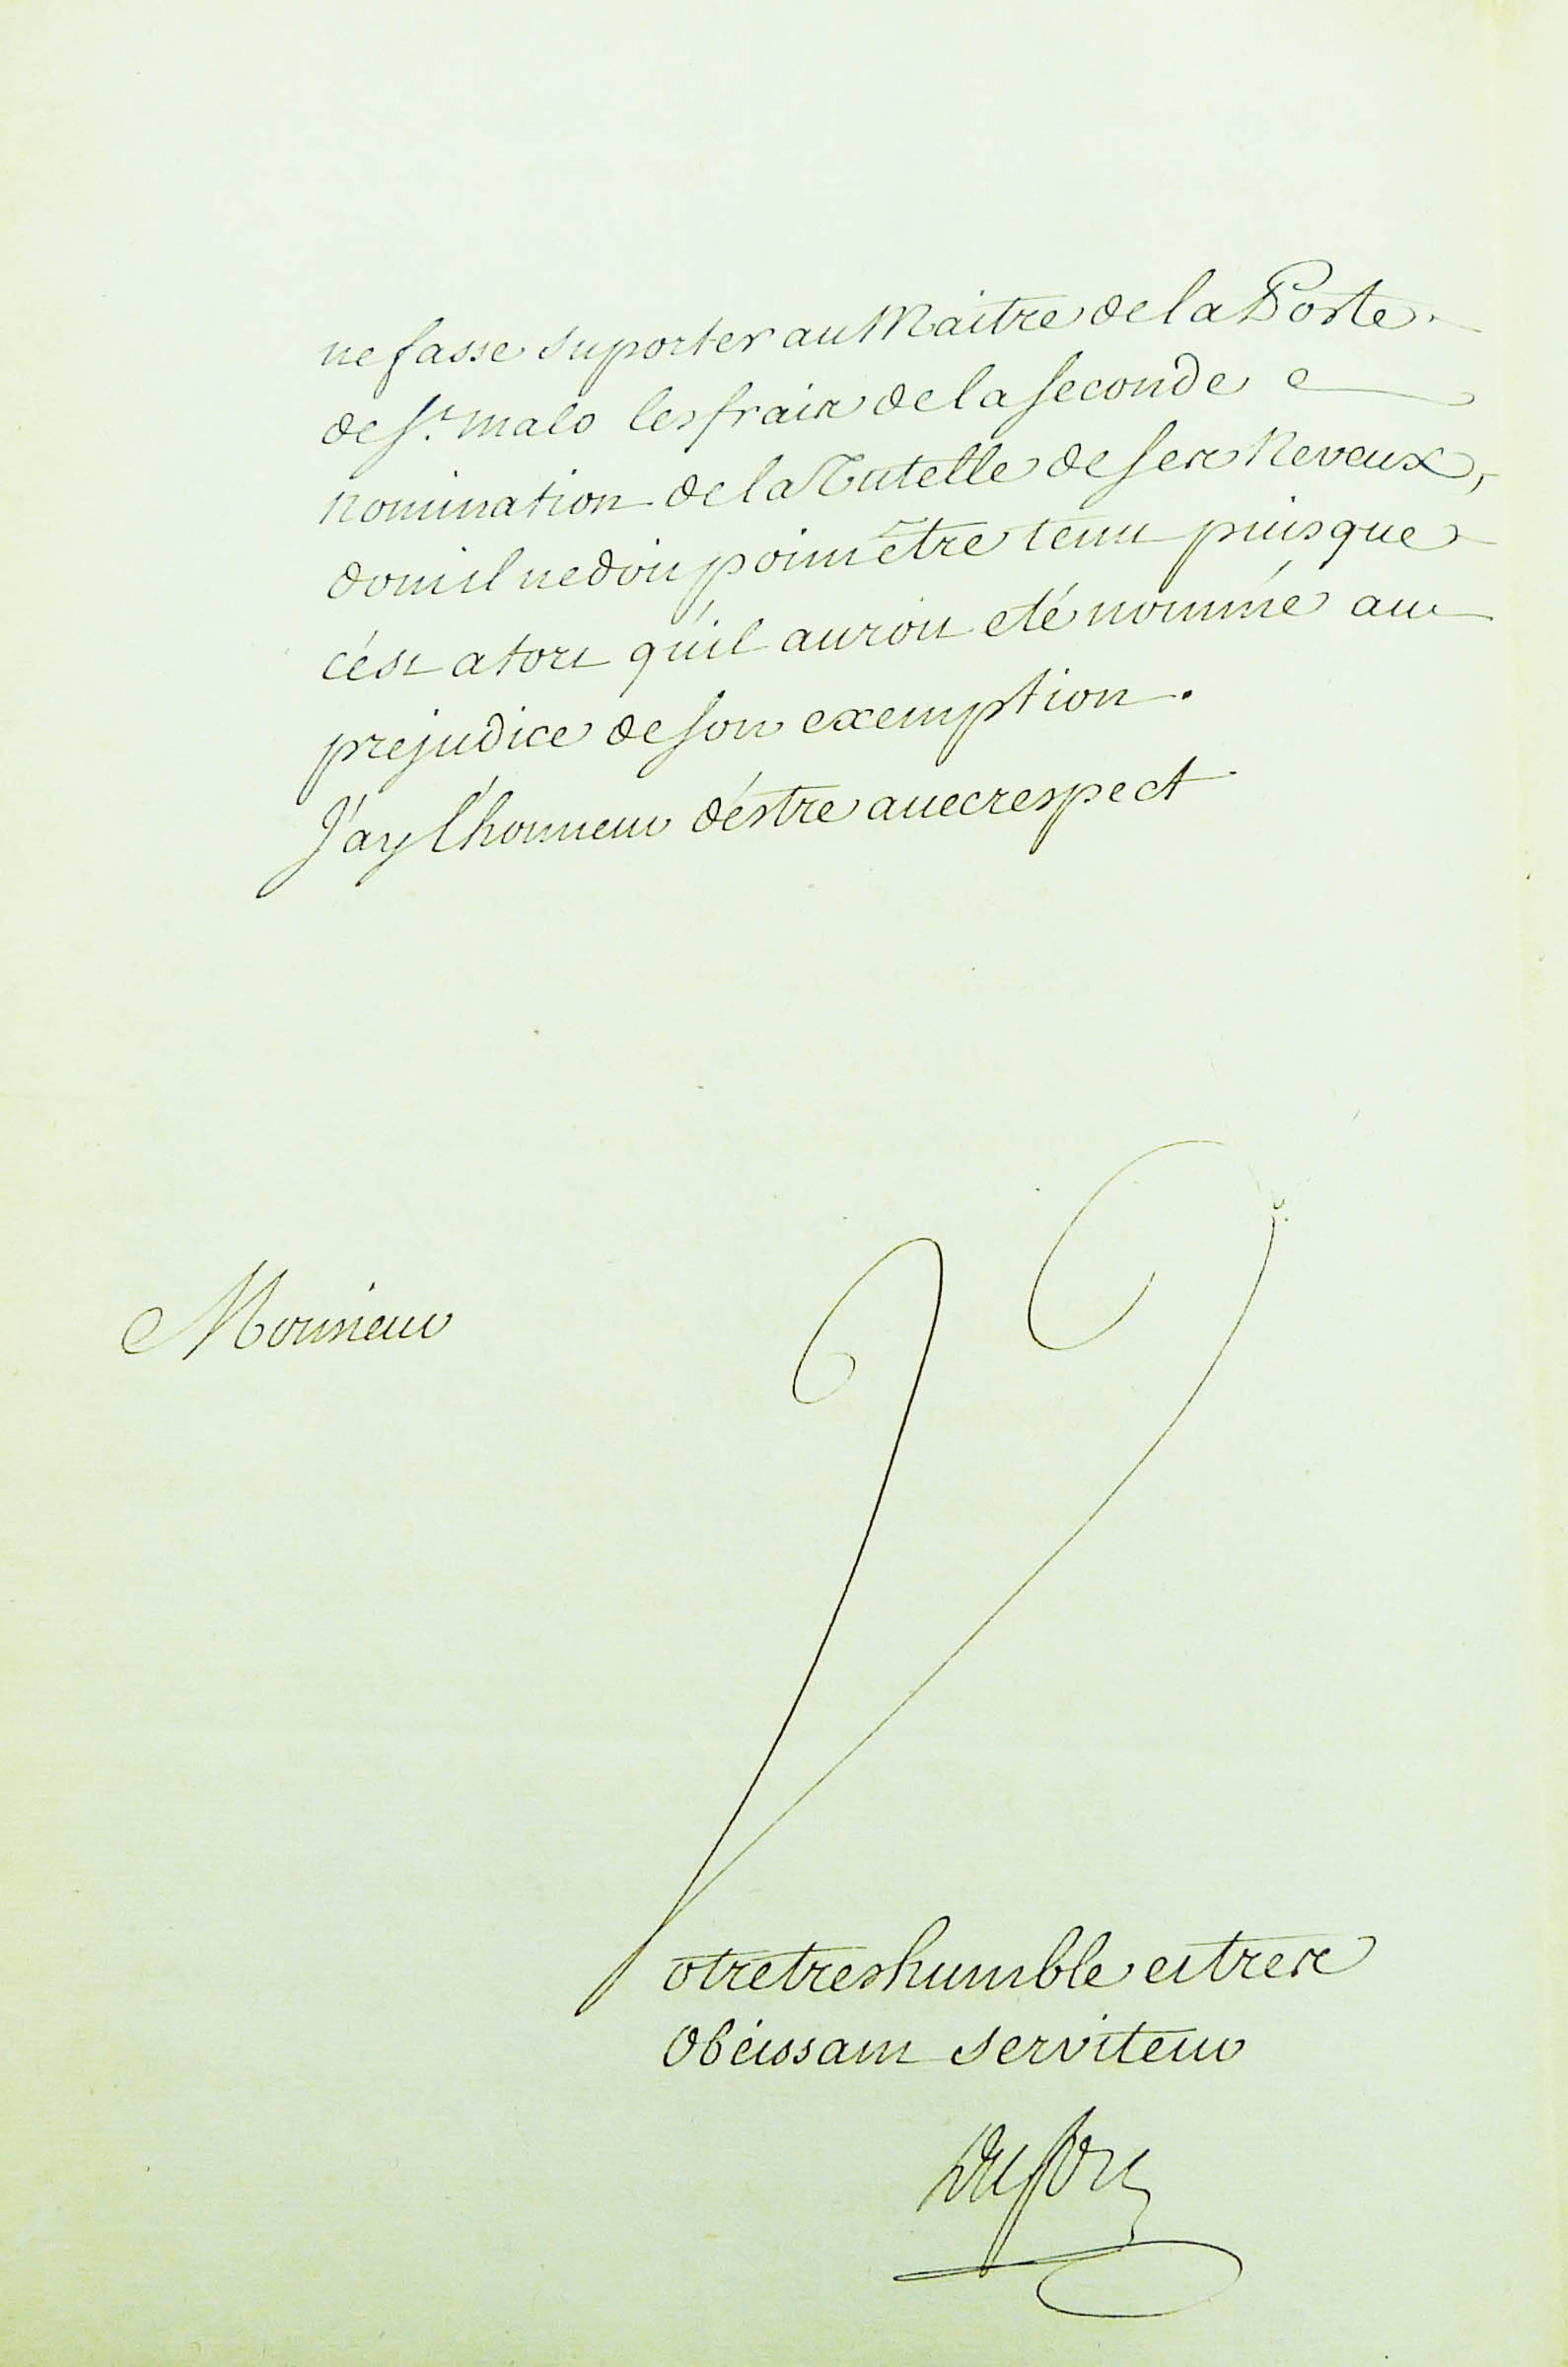 ne fasse suporter au Maitre de la Poste
de St. malo les frais de la seconde
nomination de la Tutelle de ses Neveux,
dont il ne doit point être tenu puisque
c'ést a tort qu'il auroit eté nommé au
prejudice de son exemption.
J'ay l'honneur d'éstre avec respect
Monsieur
Votre tres humble et tres
Obéissant serviteur
Dufort